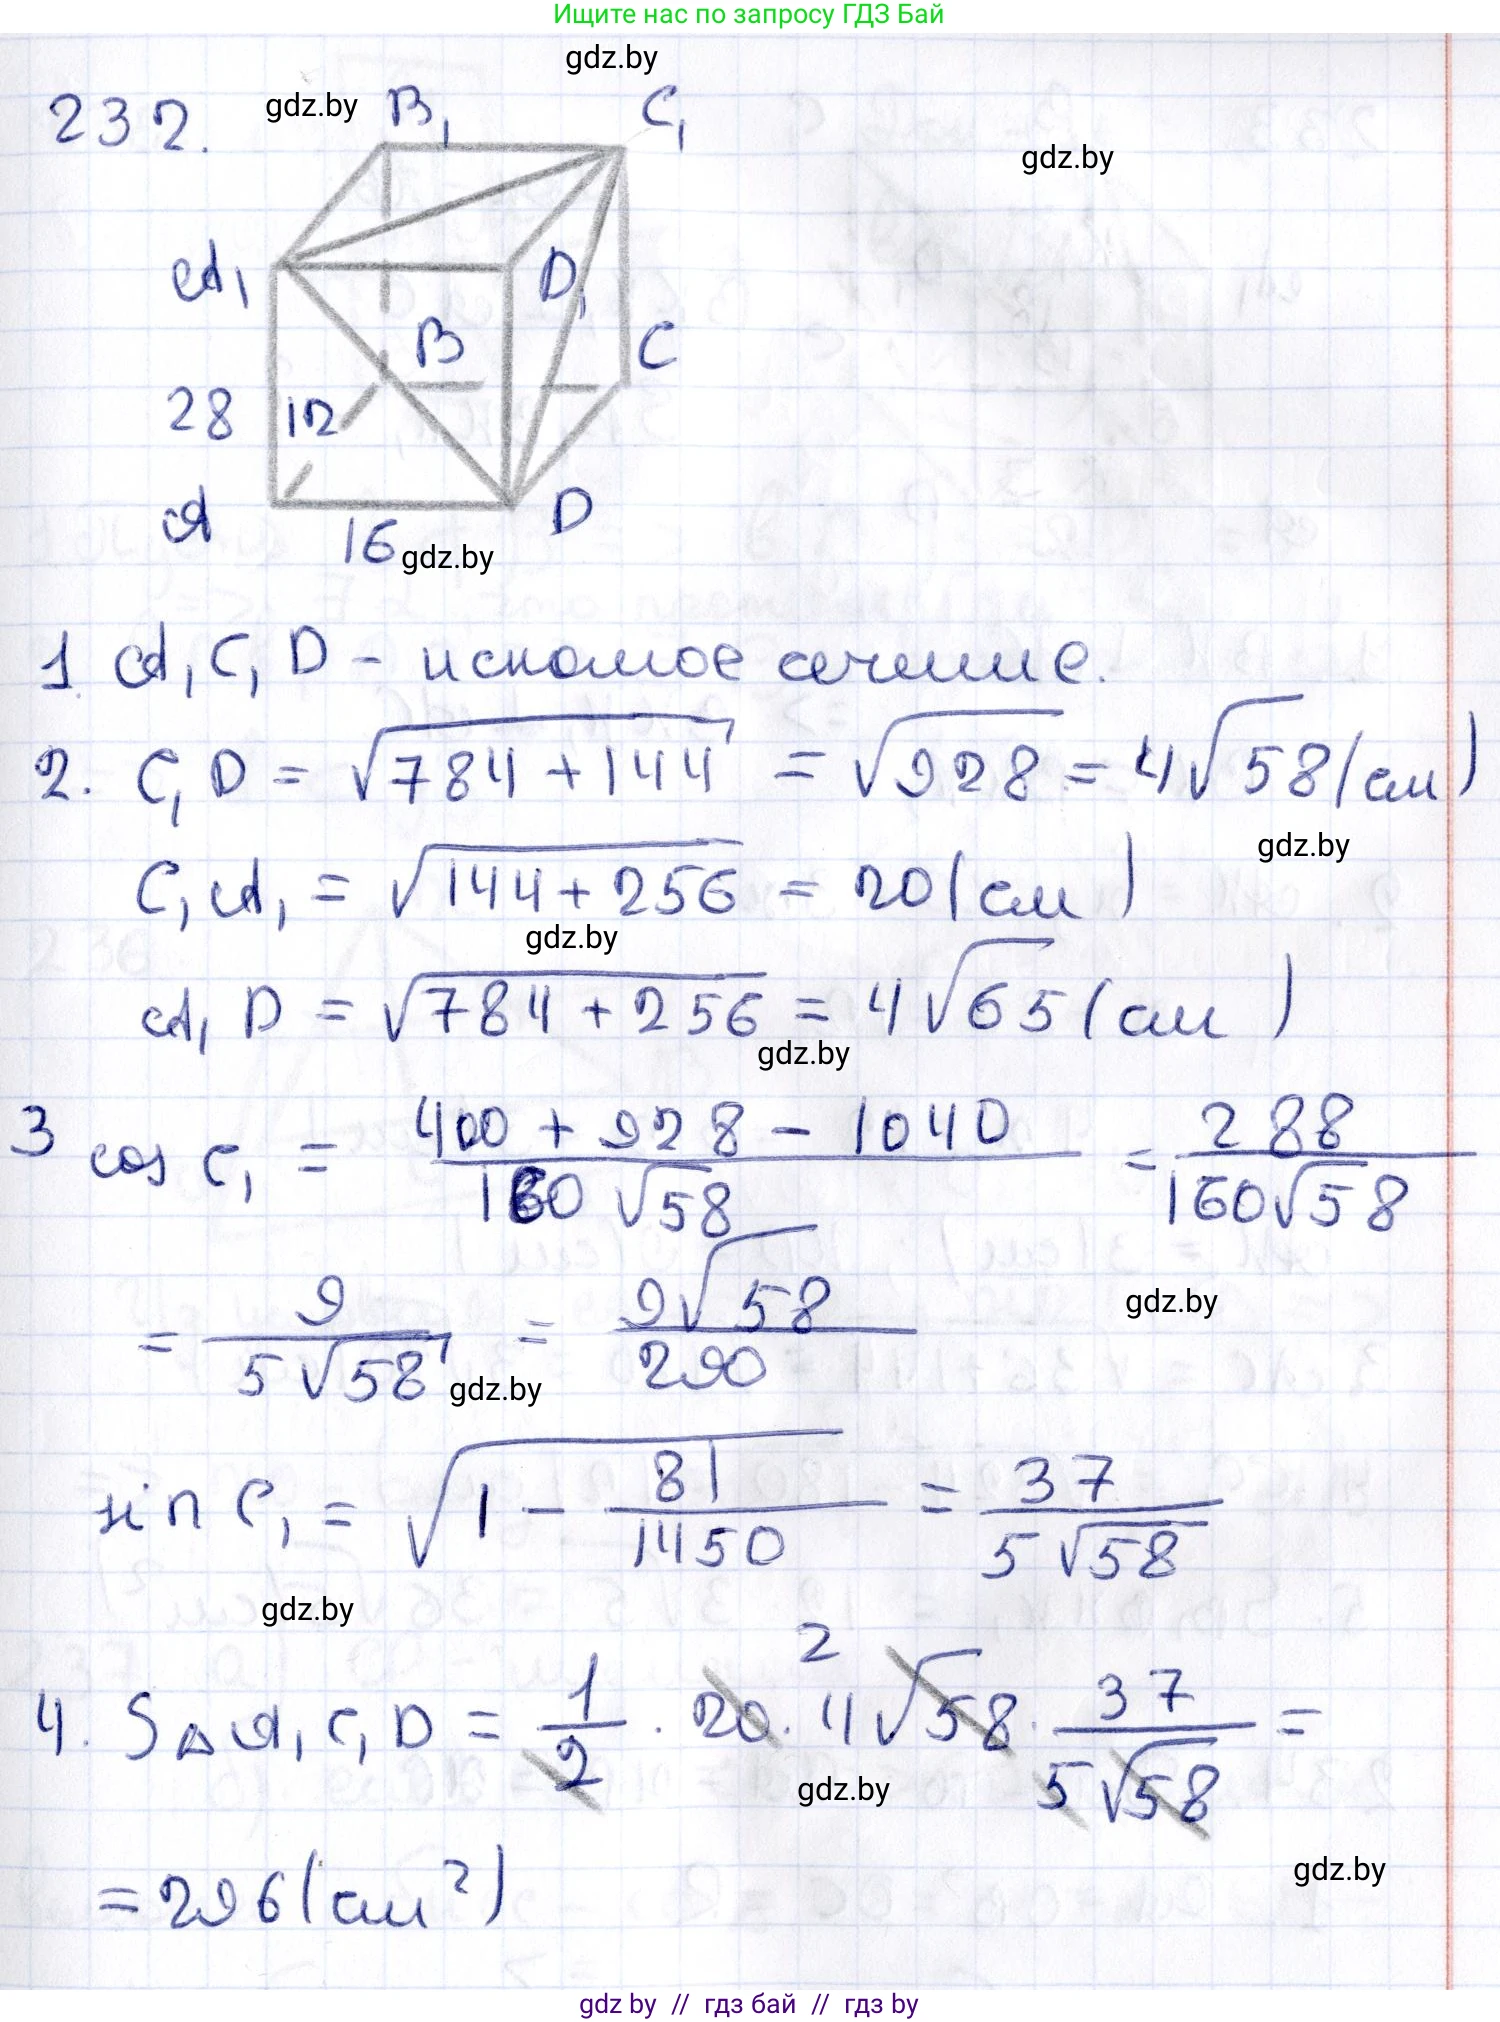 Ищите нас по запросу ГДЗ Бай
gdz.by
232.
gdz.by
B₁
C₁
gdz.by
A₁
D₁
B
C
28
12
A
D
16
gdz.by
1. A₁C₁D - искомое сечение.
2. C₁D = √(784+144) = √928 = 4√58 (см)
gdz.by
C₁A₁ = √(144+256) = 20 (см)
gdz.by
A₁D = √(784+256) = 4√65 (см)
gdz.by
3 cos C₁ = (400+928-1040)/(160√58) = 288/(160√58)
gdz.by
= 9/(5√58) = 9√58/290
gdz.by
sin C₁ = √(1 - 81/1450) = 37/(5√58)
gdz.by
2
4. S△A₁C₁D = 1/2 · 20 · 4√58 · 37/(5√58) =
gdz.by
gdz.by
= 296 (см²)
gdz by // гдз бай // гдз by